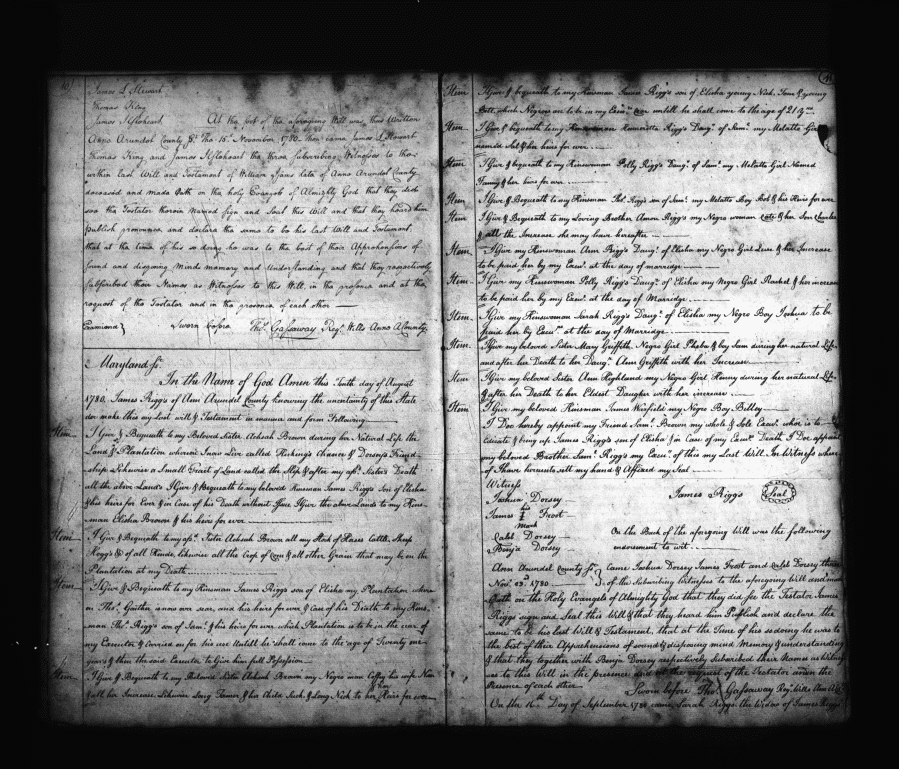 James L Stewart
Thomas King
James Iiftoheart At the foot of the aforegoing Will was thus Written
Anne Arundel County Sc. The 15th November 1780. Then came James L Stewart
Thomas King and James the three subscribing Witnesses to the
within last Will and Testament of William Sims late of Anne Arundel County
deceased and made Oath on the holy Evangels of Almighty God that they did
see the Testator therein Named Sign and Seal this Will and that they heard him
publish pronounce and declare the same to be his last Will and Testament
that at the time of his so doing he was to the best of their Apprehensions of
sound and disposing Mind memory and Understanding and that they respectively
subscribed their Names as Witnesses to this Will in the presence and at the
request of the Testator and in the presence of each other
Examined} Sworn before Thos. Gassaway Regr. Wills Anne A County
Maryland Sc.
In the Name of God Amen this Tenth day of August
1780. James Riggs of Ann Arundel County knowing the uncertainty of this State
do make this my Last will & Testament in manner and form Following
Item I Give & Bequeath to my Beloved Sister Achsah Brown during her Natural Life the
Land & Plantation whereon I now Live called Hickings Chance & Dorseys Friend-
ship Likewise a Small Tract of Land called the Slip & after my afsd. Sisters Death
all the above Lands I Give & Bequeath to my beloved Kinsman James Riggs Son of Elisha
& his heirs for Ever & in Case of his Death without Issue I Give the above Lands to my Kins-
man Elisha Brown & his heirs for ever
Item I Give & Bequeath to my afsd. Sister Achsah Brown all my Stock of Horses Cattle Sheep
Hogs &c of all Kinds, likewise all the Crop of Corn & all other Grain that may be on the
Plantation at my Death
Item I Give & Bequeath to my Kinsman James Riggs son of Elisha my Plantation where
on Thos. Gaither is now over seer, and his heirs for ever & Case of his Death to my Kins-
man Thos. Riggs son of Saml. & his heirs for ever which Plantation is to be in the care of
my Executor & Carried on for his use Untill he shall come to the age of Twenty one
years & then the said Executor to Give him full Possession
Item I Give & Bequeath to my Beloved Sister Achsah Brown my Negro man Coffey his wife Nan
& all her Increase Likewise Long Tower & her Child Suck & Long Nick to her & her Heirs for ever
Item I Give & bequeath to my Kinsman James Riggs son of Elisha young Nick, Tom & young
Pett which Negroes are to be in my Exec. care untill he shall come to the age of 21 yrs
Item I Give & bequeath to my Kinswoman Henrietta Riggs Daugr. of Saml. my Melatto Girl
named Sal & her heirs for ever
Item I Give & bequeath to my Kinswoman Polly Riggs Daugr. of Saml. my Melatto Girl Named
Fanny & her heirs for ever
Item I Give & Bequeath to my Kinsman Thos. Riggs son of Saml. my Melatto Boy Bob & his Heirs for ever
Item I Give & Bequeath to my Loving Brother Amon Riggs my Negro woman Cate & her Son Charles
& all the Increase she may have hereafter
Item I Give my Kinswoman Ann Riggs Daugr. of Elisha my Negro Girl Luce & her Increase
to be paid her by my Execr. at the day of marriage
Item I Give my Kinswoman Polly Riggs Daugr. of Elisha my Negro Girl Rachel & her increase
to be paid her by my Execr. at the day of Marriage
Item I Give my Kinswoman Sarah Riggs Daugr. of Elisha my Negro Boy Joshua to be
paid her by Execr. at the day of Marriage
Item I Give my beloved Sister Mary Griffith Negro Girl Phebe & boy Sam during her natural Life
and after her Death to her Daugr. Ann Griffith with her Increase
Item I Give my beloved Sister Ann Highland my Negro Girl Henny during her natural Life
& after her Death to her Eldest Daughter with her increase
Item I Give my beloved Kinsman James Warfield my Negro Boy Billey
I Do hereby appoint my Friend Saml. Brown my whole & Sole Execr. who is to
Educate & bring up James Riggs son of Elisha & in Case of my Execrs. Death I Doe appoint
my beloved Brother Saml. Riggs my Execr. of this my Last Will. In Witness where
of I have hereunto sett my hand & Affixed my Seal
Witness
Joshua Dorsey James Riggs Seal
his
James Frost
mark
Caleb Dorsey On the Back of the aforegoing Will was the following
Benja. Dorsey endorsement to wit
Ann Arundel County Sc. Came Joshua Dorsey James Frost and Caleb Dorsey three
Novr. 23d. 1780 } of the Subscribing Witnesses to the aforegoing Will and made
Oath on the Holy Evangels of Almighty God that they did see the Testator James
Riggs sign and Seal this Will & that they heard him Publish and declare the
same to be his last Will & Testament, that at the Time of his so doing he was to
the best of their Apprehensions of sound & disposing mind Memory & understanding
& that they together with Benja. Dorsey respectively Subscribed their Names as Witness
es to this Will in the presence and at the request of the Testator and in the
Presence of each other Sworn before Thos. Gassaway Regr. Wills Ann A Cy.
On the 16th Day of September 1781 came Sarah Riggs the Widow of James Riggs